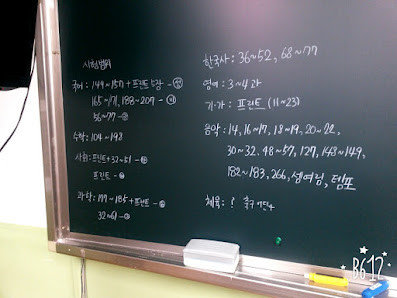 시험범위
국어 : 149~157 + 프린트 5장
165~171, 188~207
56~77
수학 : 104~198
사회 : 프린트 + 32~51
프린트
과학 : 177~185 + 프린트
32~61
한국사 : 36~52, 68~77
영어 : 3~4과
기·가 : 프린트 (11~23)
음악 : 14, 16~17, 18~19, 20~22,
30~32, 48~57, 127, 148~149,
182~183, 266, 셈여림, 템포
체육 : ? 축구
B612